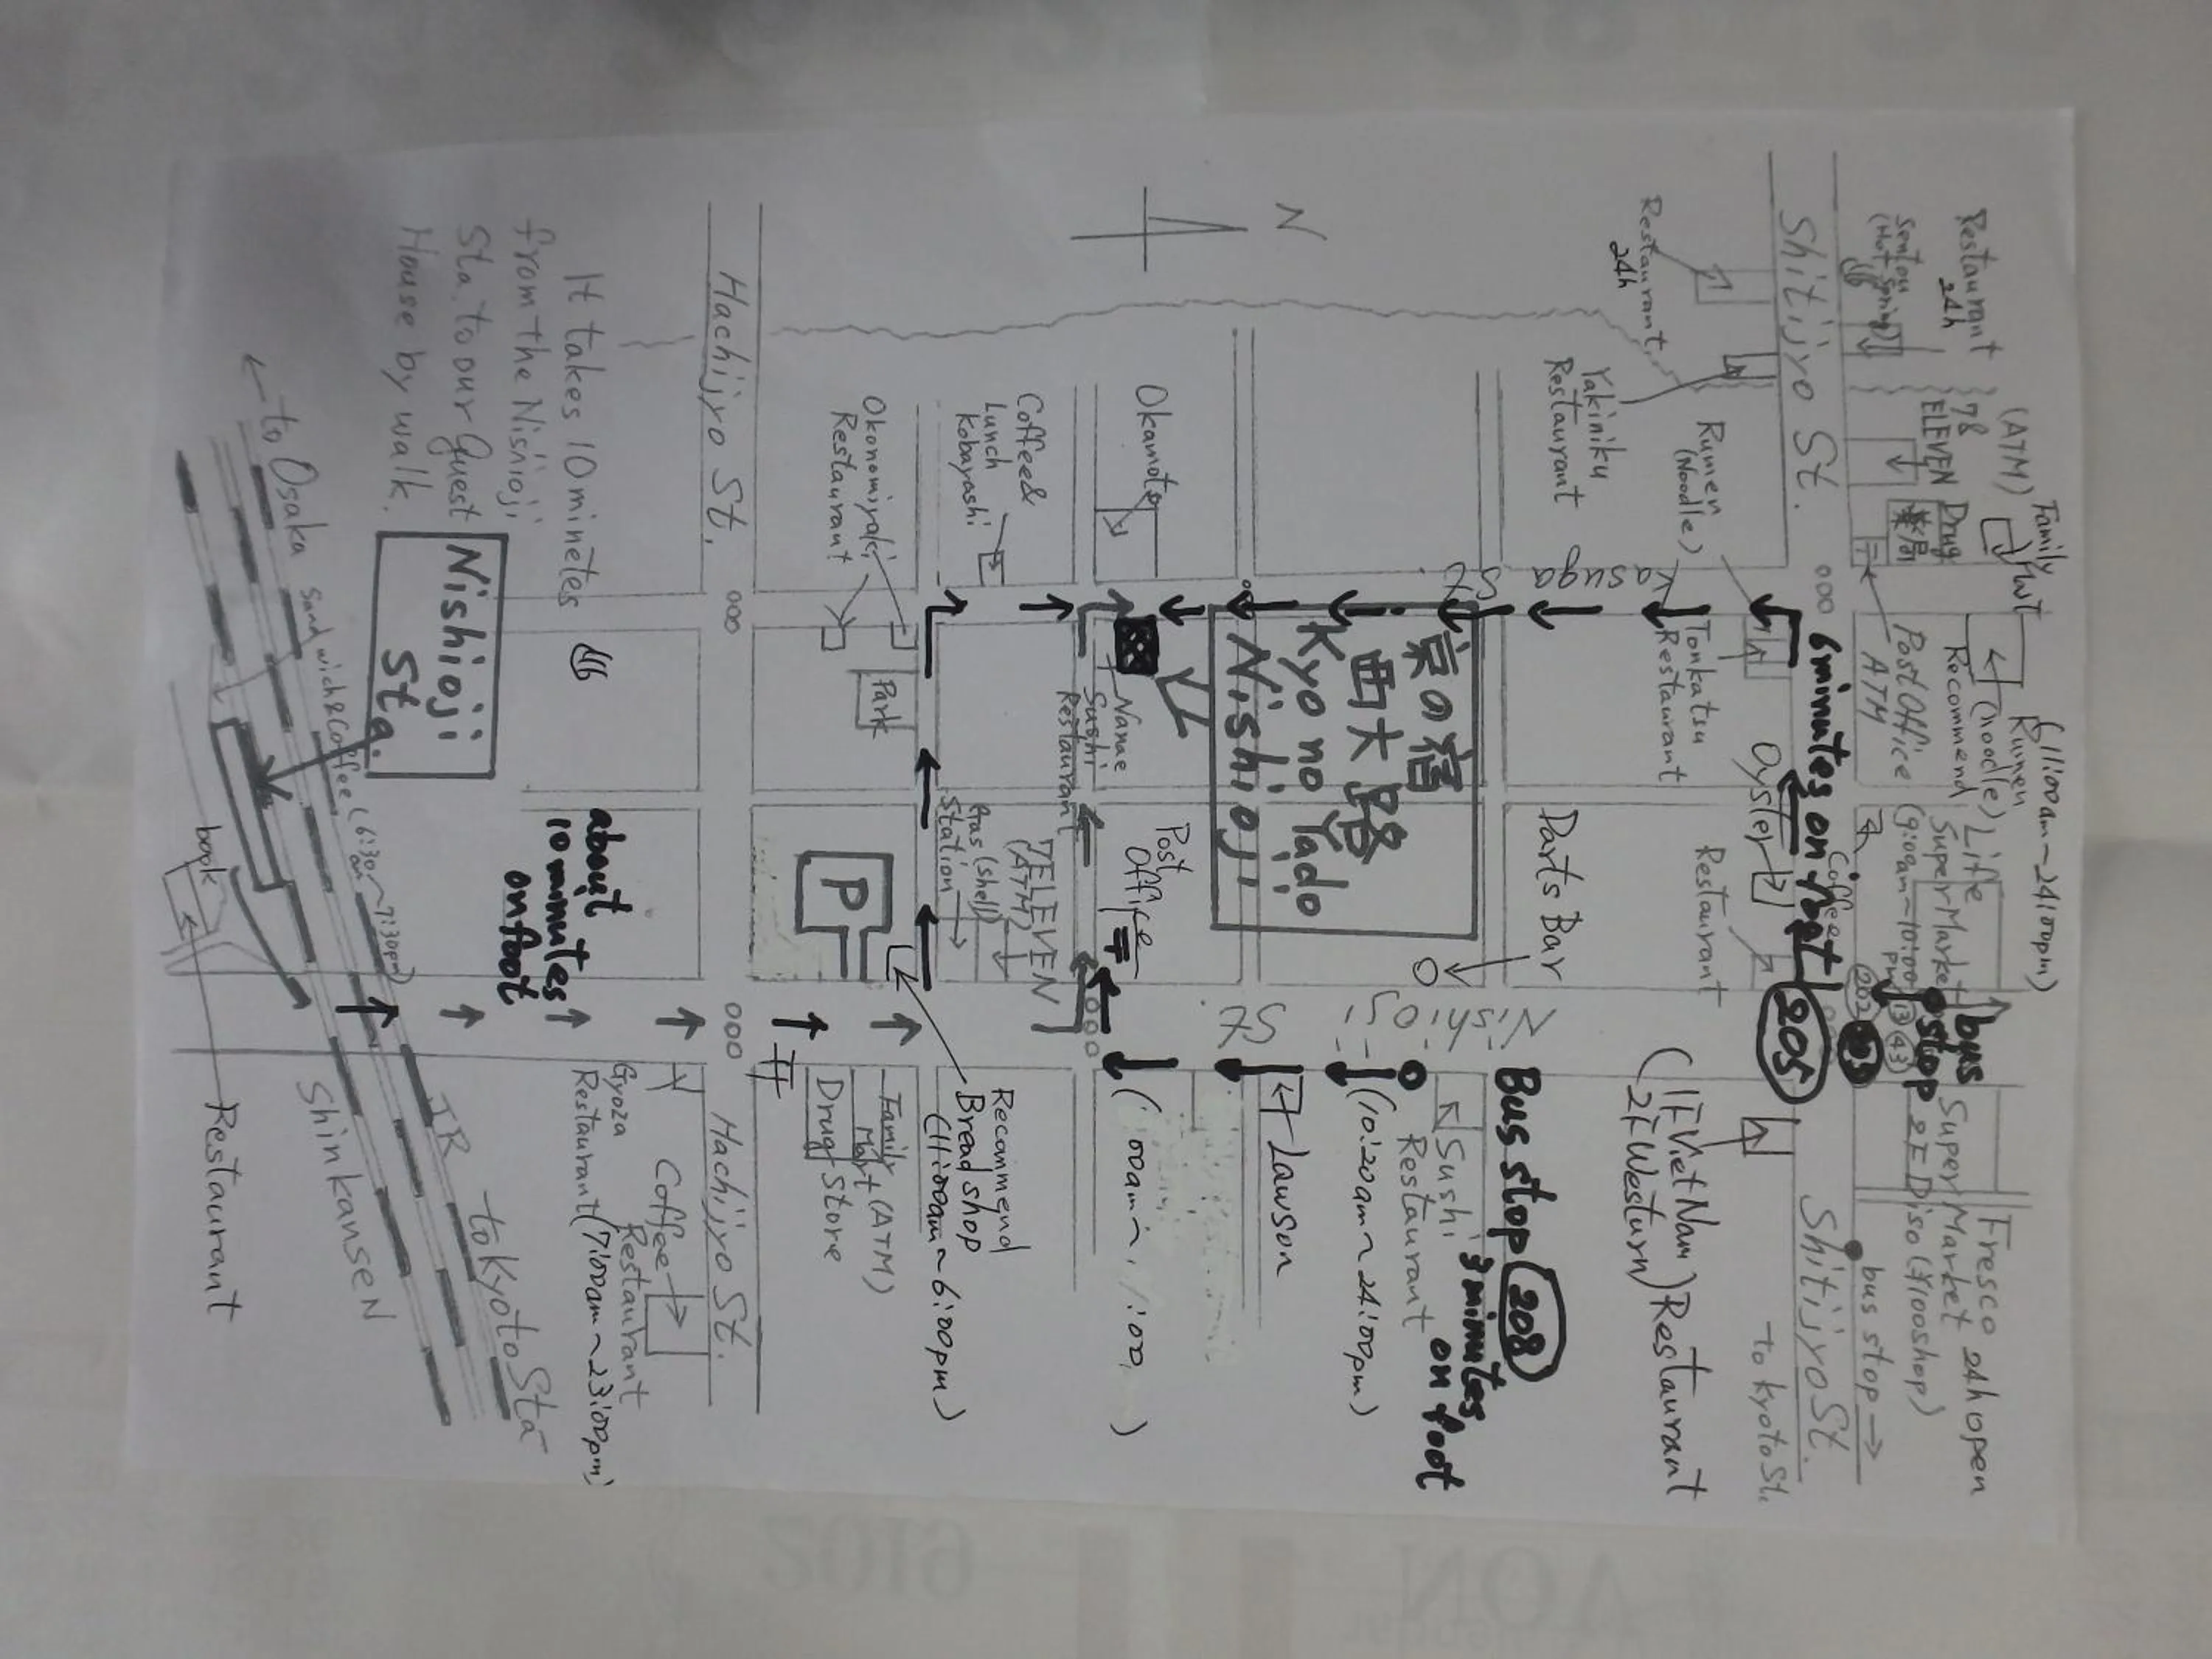 Restaurant
24h
Sentou
(Hot Spring)
Shitijyo St.
Restaurant
Restaurant
24h
(ATM)
7&
ELEVEN
Drug
薬局
Family
Rumen
(Noodle)
Yakiniku
Restaurant
N
Okamoto
Coffee&
Lunch
Kobayashi
Okonomiyaki
Restaurant
Hachijyo St.
It takes 10 minetes
from the Nisnioji
Sta. to our Guest
House by walk.
← to Osaka
(11:00am~24:00pm)
Rumen
(noodle)
Recomend
Post Office
ATM
Life
Super Market
(9:00am~10:00
pm)
6 minutes on foot
Coffee
Kasuga
St
Tonkatsu
Restaurant
Oyster
Restaurant
Parts Bar
京の宿
西大路
Kyo no Yado
Nishioji
Nanae
Sushi
Restaurant
Post
Office
〒
7ELEVEN
(ATM)
Gas (shell)
Station
Park
P
about
10 minutes
on foot
Nishioji
Sta.
Sandwich&Coffee (6:30am~7:30pm)
book
Restaurant
bus
stop
202
13
43
205
Nishioji
St
Super
Market
Fresco 24h open
2F Diso (¥100shop)
bus stop →
Shitijyo St.
to Kyoto St.
(1F VietNam
2F Westurn) Restaurant
Bus stop 208
3 minutes
on foot
Sushi
Restaurant
(10:20am~24:00pm)
Lawson
Recommend
Bread shop
(11:00am~6:00pm)
Family
Mart (ATM)
Drug Store
Hachijyo St.
Coffee
Restaurant
Gyoza
Restaurant (7:00am~23:00pm)
to Kyoto Sta
JR
ShinkanseN